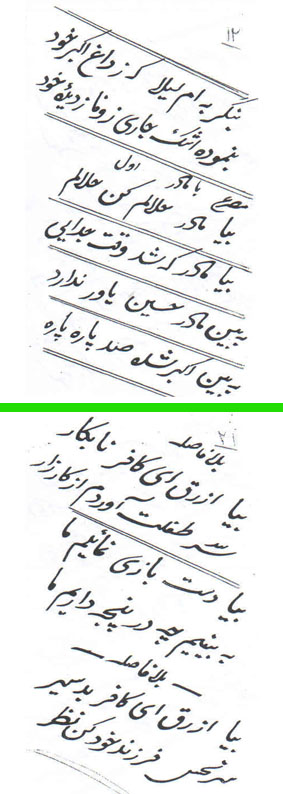 ۱۲
بنگر به ام لیلا کز داغ اکبر خود
بنموده اشک جاری زوفا ز دیدهٔ خود
مصرع با مادر اول
بیا مادر حلالم کن حلالم
بیا مادر که شد وقت جدایی
به بین مادر حسین یاور ندارد
به بین اکبر شده صد پاره پاره
۲۱
بلافاصله
بیا ازرق ای کافر نابکار
سر طفلت آوردم از کارزار
بیا دست بازی نمائیم ما
به بینیم چه در پنجه داریم ما
بلافاصله
بیا ازرق ای کافر بد سیر
سر نحس فرزند خود کن نظر